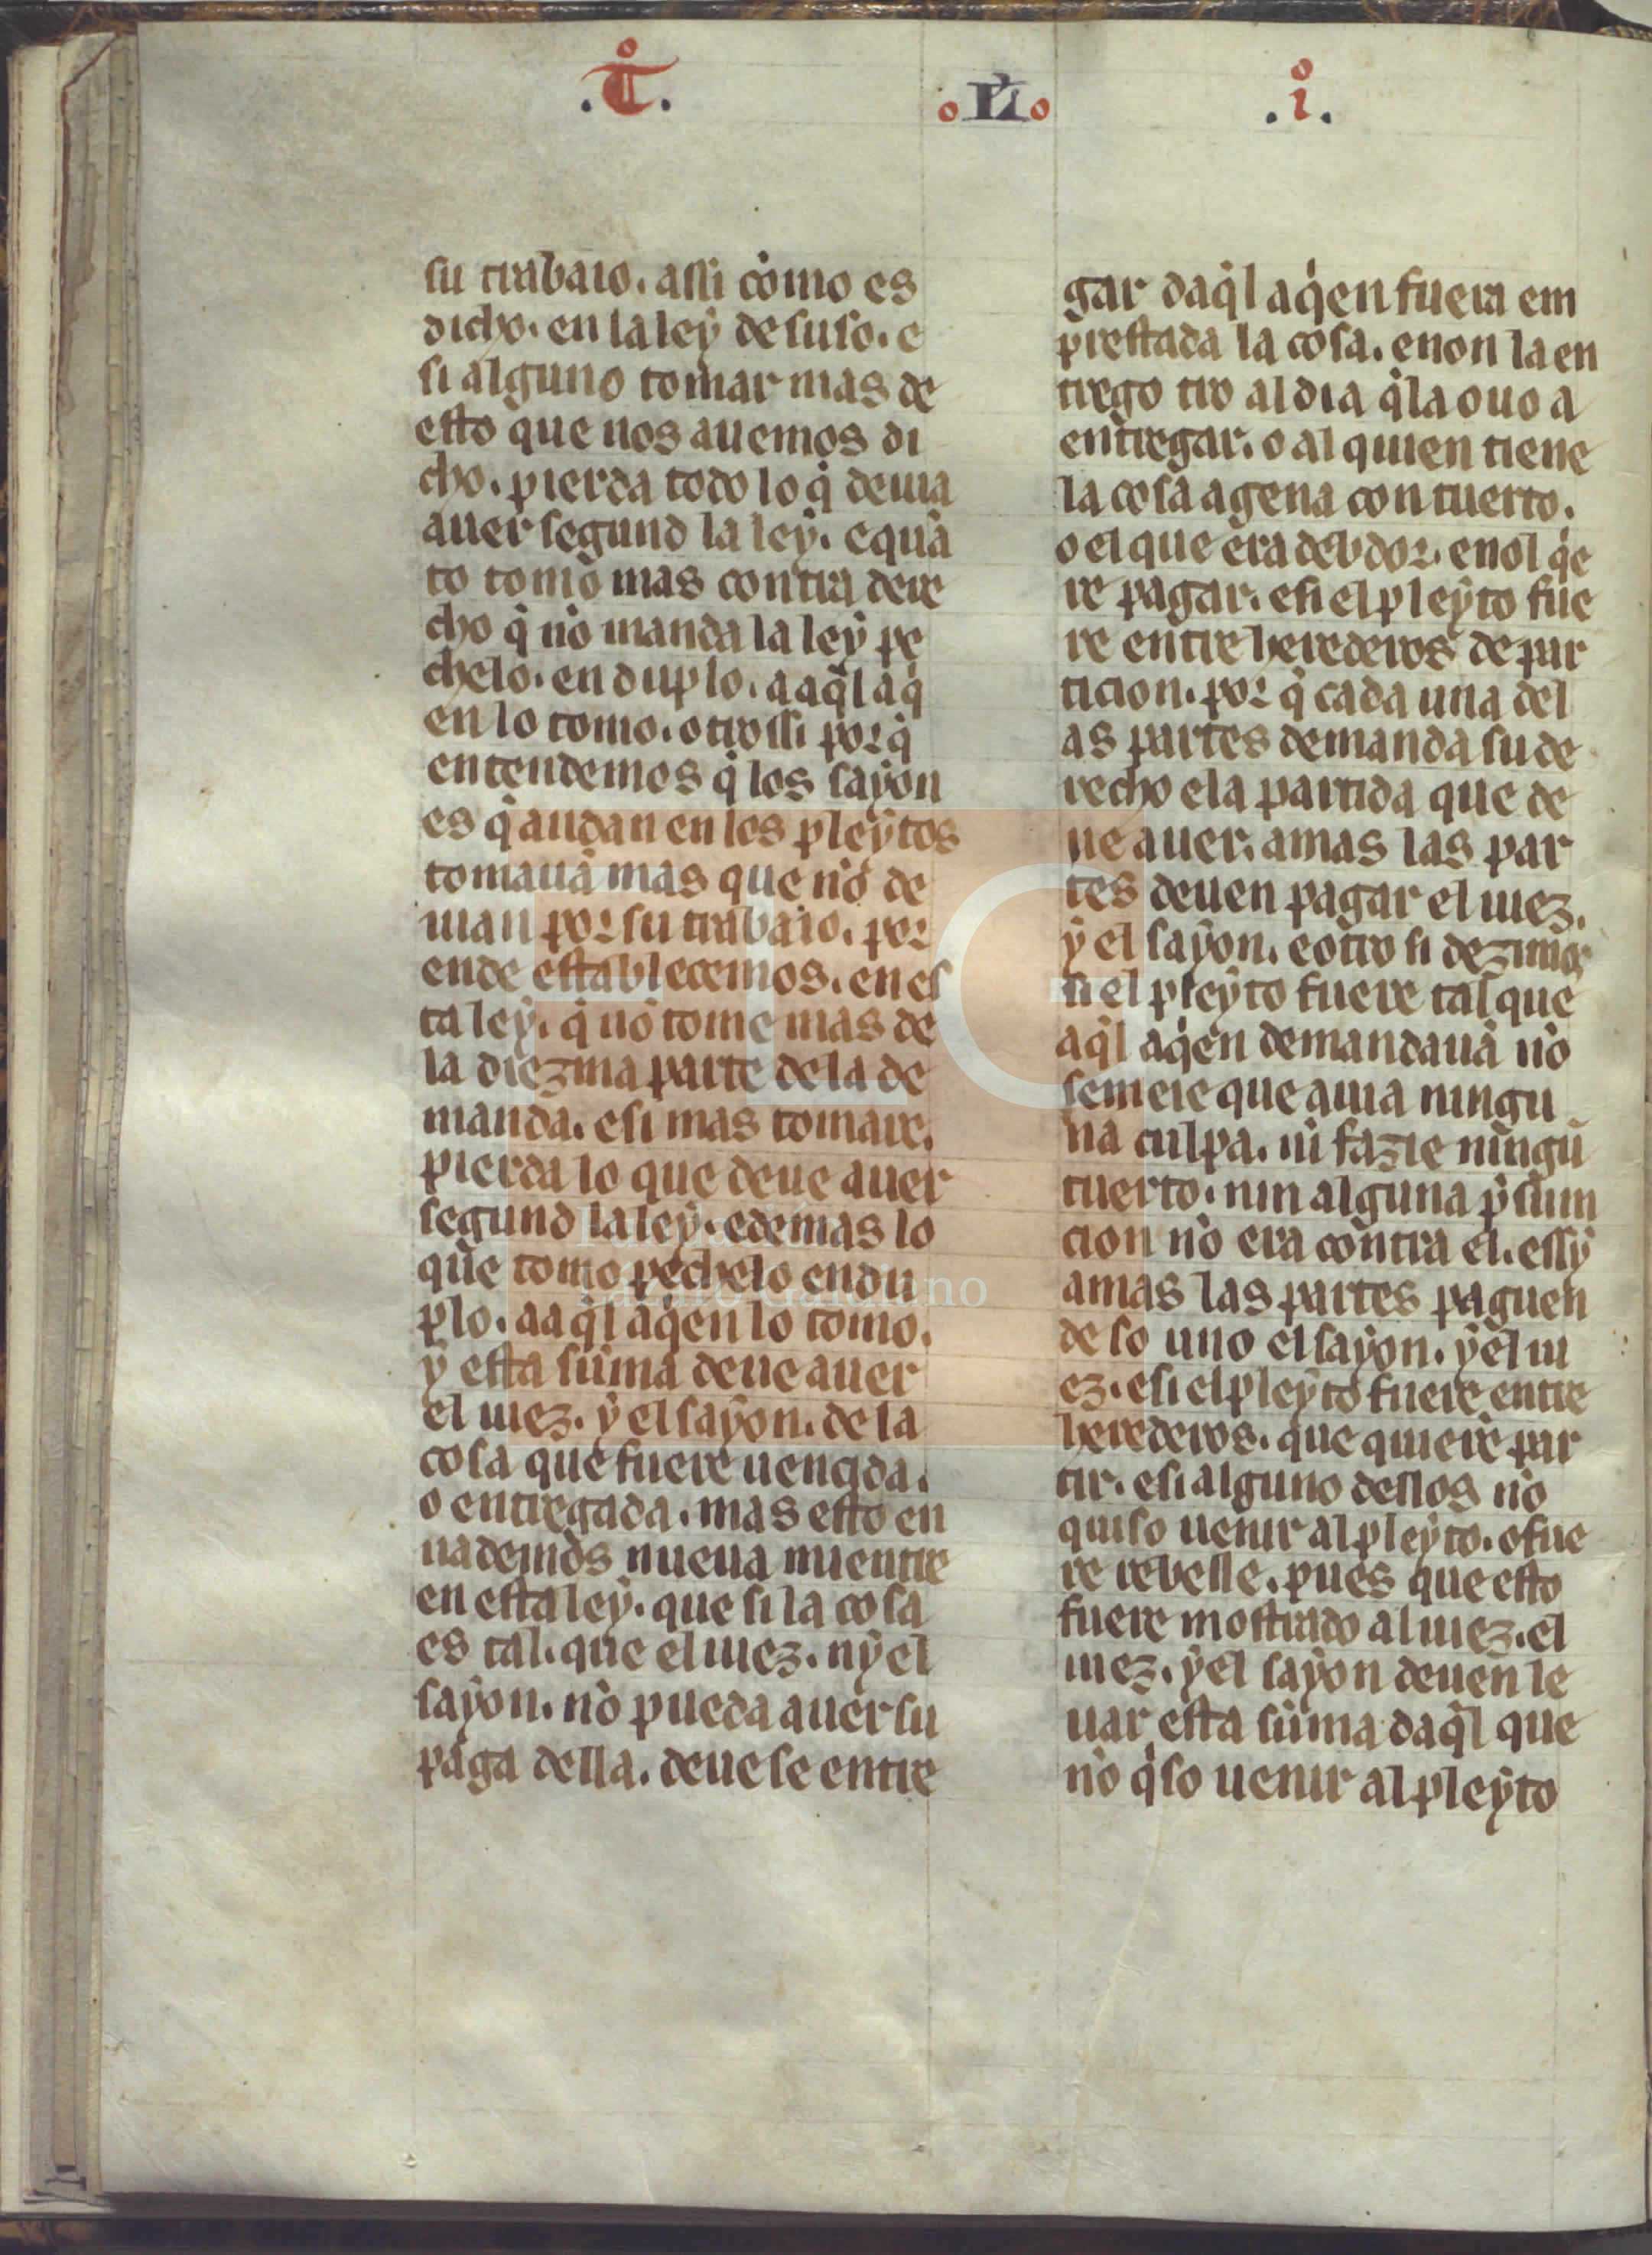 .T.
.II.
.i.
su trabaio. assi cŏmo es
dicho. en la ley de suso. e
si alguno tomar mas de
esto que nos auemos di
cho. pierda todo lo q̇ deuia
auer segund la ley. e quā
to tomo mas contra dere
cho q̇ nō manda la ley pe
chelo. en duplo. a aq̄l a q̇
en lo tomo. otrossi por q̇
entendemos q̇ los sayon
es q̇ andan en los pleytos
tomauā mas que nō de
uian por su trabaio. por
ende establecemos. en es
ta ley. q̇ nō tome mas de
la diezma parte dela de
manda. e si mas tomare.
pierda lo que deue auer
segund la ley. e demas lo
que tomo pechelo en du
plo. a aq̇l a q̇en lo tomo.
y esta sūma deue auer
el iuez. y el sayon. de la
cosa que fuere uencida.
o entregada. mas esto en
nademos nueua mientre
en esta ley. que si la cosa
es tal. que el iuez. ny el
sayon. nō pueda auer su
paga della. deue se entre
gar daq̇l a q̇en fuera em
prestada la cosa. e non la en
trego tro al dia q̇ la ouo a
entregar. o al quien tiene
la cosa agena con tuerto.
o el que era debdor. e nol q̇e
re pagar. e si el pleyto fue
re entre herederos de par
ticion. por q̇ cada una del
as partes demanda su de
recho e la partida que de
ue auer. amas las par
tes deuen pagar el iuez.
y el sayon. e otro si dezimos
si el pleyto fuere tal que
aq̇l a q̇en demandauā nō
semeie que auia ningu
na culpa. ni fazie ningū
tuerto. nin alguna p̄sum
cion nō era contra el. essy
amas las partes paguen
de so uno el sayon. y el iu
ez. e si el pleyto fuere entre
herederos. que quierē par
tir. e si alguno dellos nō
quiso uenir al pleyto. o fue
re rebelle. pues que esto
fuere mostrado al iuez. el
iuez. y el sayon deuen le
uar esta sūma daq̄l que
nō q̇so uenir al pleyto